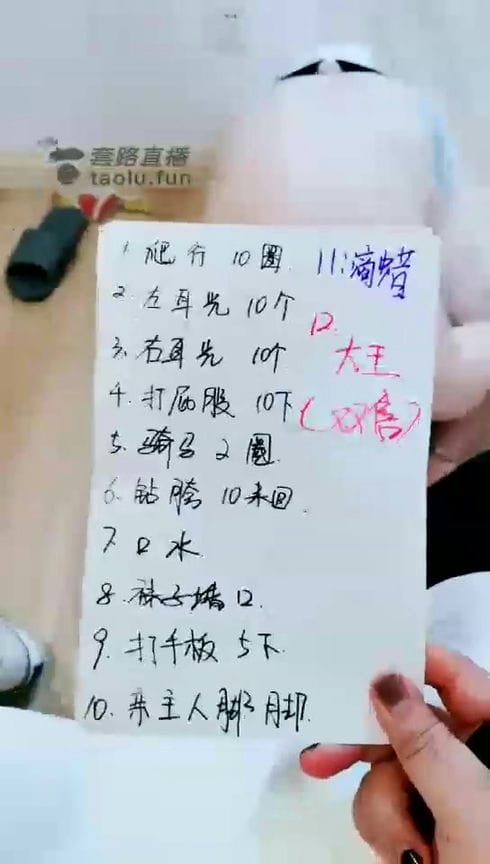 套路直播
taolu.fun
1. 爬行 10圈
2. 左耳光 10个
3. 右耳光 10个
4. 打屁股 10下
5. 骑马 2圈
6. 钻胯 10来回
7. 口水
8. 袜子 口
9. 打手板 5下
10. 主人脚
11: 滴蜡
12.
大王
(双倍)